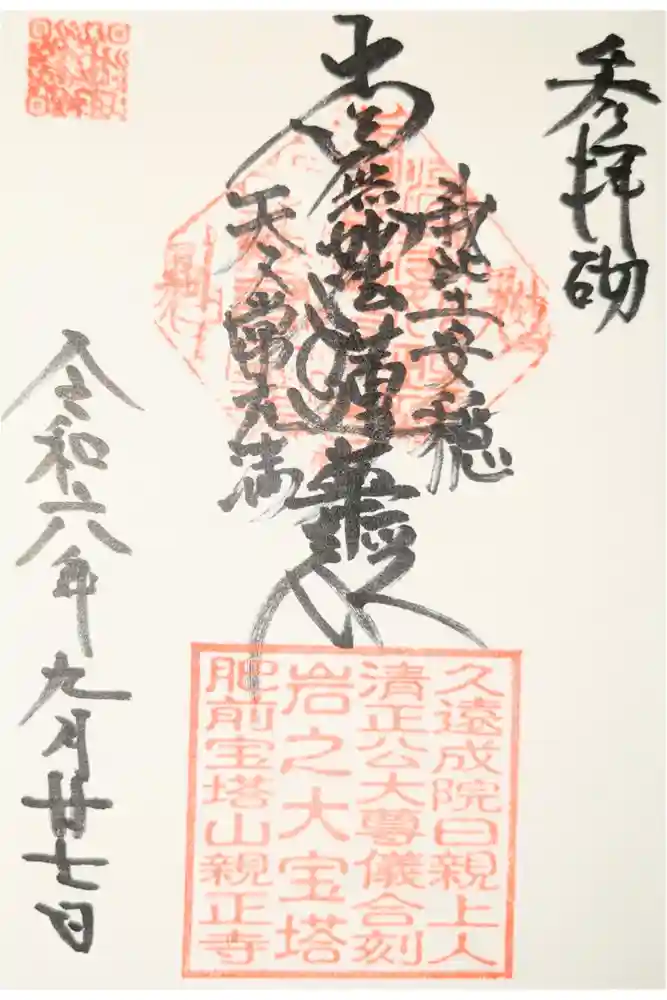 参拝砌
我此土安穏
南無妙法蓮華経
天人常充満
令和六年九月廿七日
久遠成院日親上人
清正公大尊儀合刻
岩之大宝塔
肥前宝塔山親正寺